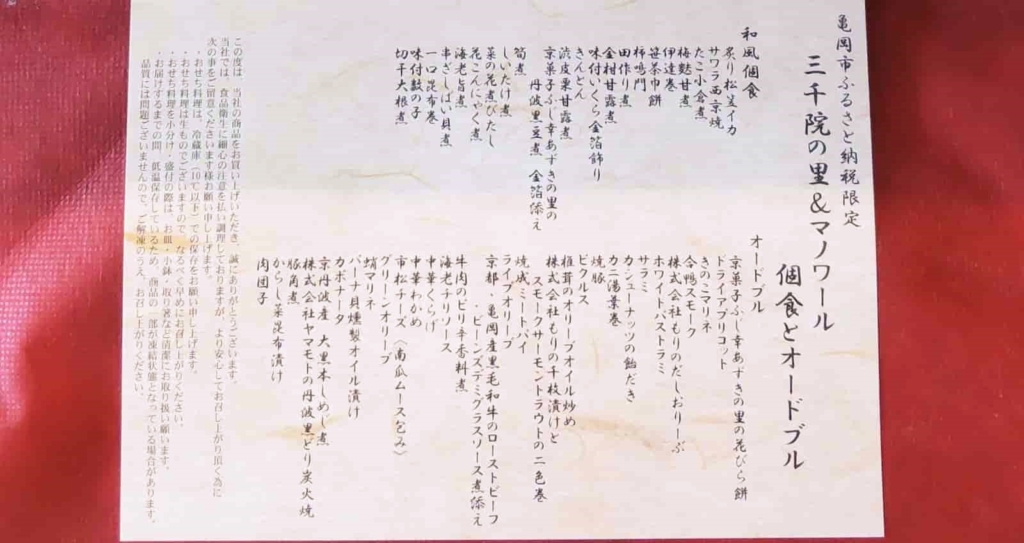 亀岡市ふるさと納税限定
三千院の里＆マノワール
個食とオードブル
和風個食
炙り松笠イカ
サワラ西京焼
たこ小倉煮
梅麩甘煮
伊達巻
笹茶巾餅
柿鳴門
田作り煮
金柑甘露煮
味付いくら金箔飾り
きんとん
渋皮栗甘露煮
京菓子ふじ幸あずきの里の
丹波黒豆煮 金箔添え
筍煮
しいたけ煮
菜の花煮びたし
花こんにゃく煮
海老旨煮
串ざしばい貝煮
一口昆布巻
味付数の子
切干大根煮
オードブル
京菓子ふじ幸あずきの里の花びら餅
ドライアプリコット
きのこマリネ
合鴨スモーク
株式会社もりのだしおりーぶ
ホワイトパストラミ
サラミ
カシューナッツの飴だき
カニ湯葉巻
焼豚
ピクルス
椎茸のオリーブオイル炒め
株式会社もりの千枚漬けと
スモークサーモントラウトの二色巻
焼成ミートパイ
ライプオリーブ
京都・亀岡産黒毛和牛のローストビーフ
・ビーンズデミグラスソース煮添え
牛肉のピリ辛香料煮
海老チリソース
中華くらげ
中華わかめ
市松チーズ〈南瓜ムース包み〉
グリーンオリーブ
蛸マリネ
バーナ貝燻製オイル漬け
カポナータ
京丹波産 大黒本しめじ煮
株式会社ヤマモトの丹波黒どり炭火焼
豚角煮
からし菜昆布漬け
肉団子
この度は、当社の商品をお買い上げいただき、誠にありがとうございます。
当社では、食品衛生に細心の注意を払い調理しておりますが、より安心してお召し上がり頂く為に
次の事をご留意くださいます様お願い申し上げます。
・おせち料理は、冷蔵庫（10℃以下）での保存をお願い申し上げます。
・おせち料理は生ものでございますので、なるべく早めにお召し上がりください。
・おせち料理を小分け・盛付の際は、お皿・小鉢・取り箸など清潔にお取り扱い願います。
・お届けするまでの間、低温保存しているため、商品の一部が凍結状態となっている場合があります。
品質には問題ございませんので、ご解凍のうえ、お召し上がりください。